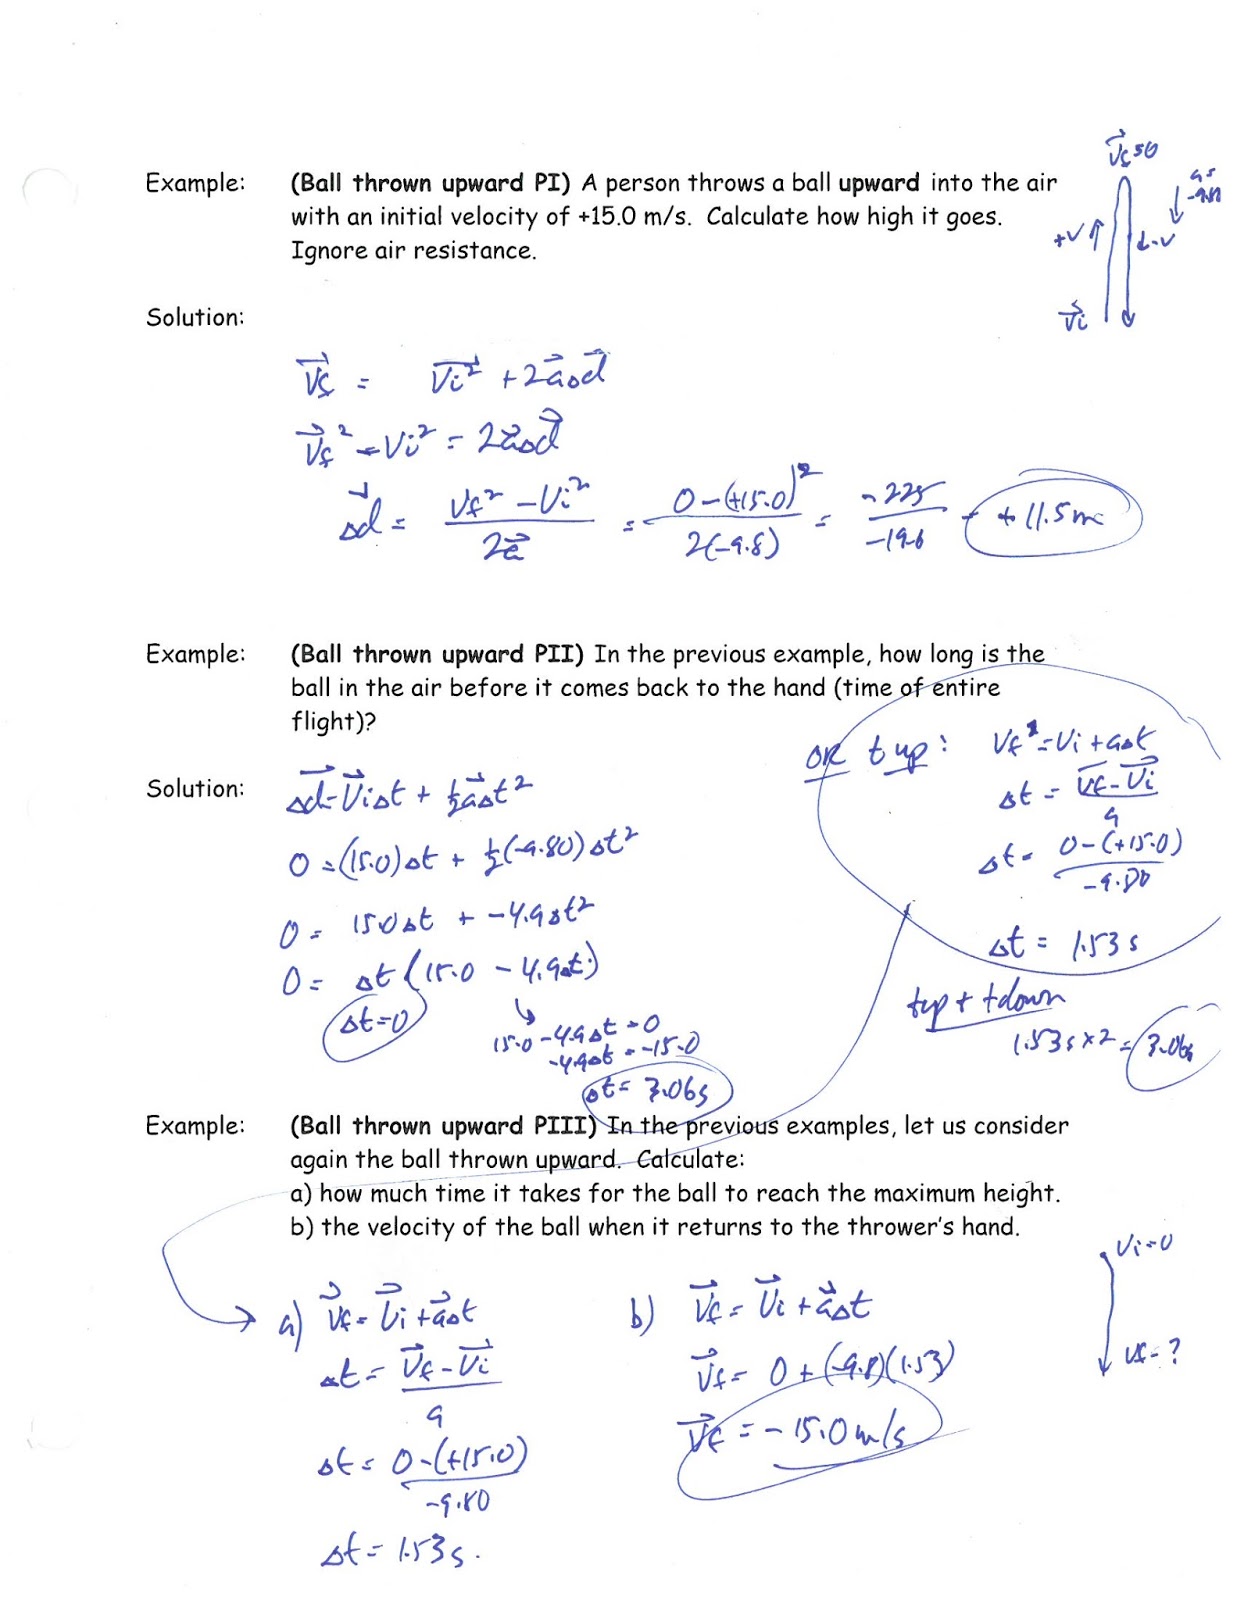 Example: (Ball thrown upward PI) A person throws a ball upward into the air
with an initial velocity of +15.0 m/s. Calculate how high it goes.
Ignore air resistance.
+v
-v
Vi
Solution:
Vf = Vi² + 2aΔd
Vf² - Vi² = 2aΔd
Δd = (Vf² - Vi²)/2a = (0-(+15.0)²)/2(-9.8) = -225/-19.6 = +11.5m
Example: (Ball thrown upward PII) In the previous example, how long is the
ball in the air before it comes back to the hand (time of entire
flight)?
Solution: Δd = ViΔt + ½aΔt²
0 = (15.0)Δt + ½(-9.80)Δt²
0 = 15.0Δt + -4.9Δt²
0 = Δt(15.0 - 4.9Δt)
Δt=0
15.0-4.9Δt=0
-4.9Δt = -15.0
Δt = 3.06s
OR t up: Vf = Vi + aΔt
Δt = (Vf-Vi)/a
Δt = (0-(+15.0))/-9.80
Δt = 1.53s
tup + tdown
1.53s x 2 = 3.06s
Example: (Ball thrown upward PIII) In the previous examples, let us consider
again the ball thrown upward. Calculate:
a) how much time it takes for the ball to reach the maximum height.
b) the velocity of the ball when it returns to the thrower's hand.
a) Vf = Vi + aΔt
Δt = (Vf-Vi)/a
Δt = (0-(+15.0))/-9.80
Δt = 1.53s.
b) Vf = Vi + aΔt
Vf = 0 + (-9.8)(1.53)
Vf = -15.0m/s
Vi=0
Vf=?